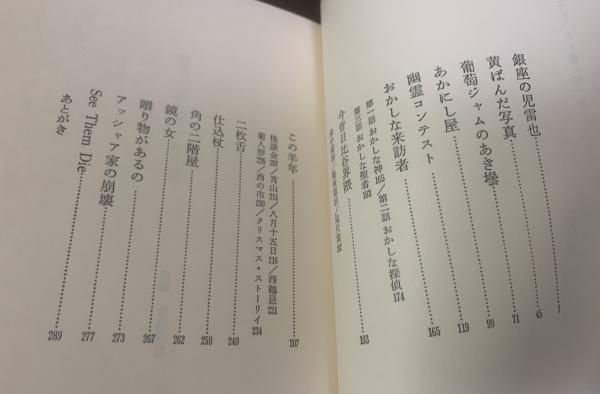 銀座の児雷也 7
黄ばんだ写真 45
葡萄ジャムのあき壜 71
あかにし屋 99
幽霊コンテスト 119
おかしな来訪者 165
第一話 おかしな神165／第二話 おかしな探偵174
第三話 おかしな聖者183
今昔日比谷界隈 193
この半年 207
怪談会207／青山211／八月十五日216／西鶴忌221
菊人形226／酉の市230／クリスマス・ストーリイ234
二枚舌
仕込杖 240
角の二階屋 250
鏡の女 262
贈り物があるの 267
アッシャア家の崩壊 273
See Them Die 277
あとがき 289